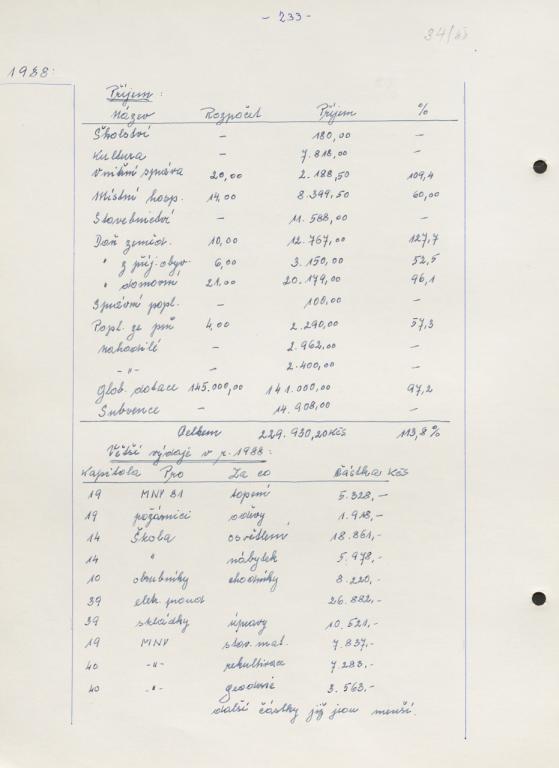 - 233 -
1988:
Příjem:
Název Rozpočet Příjem %
Školství - 180,00 -
Kultura - 7.818,00 -
Vnitřní správa 20,00 2.188,50 109,4
Místní hosp. 14,00 8.399,50 60,00
Stavebnictví - 11.588,00 -
Daň zeměd. 10,00 12.767,00 127,7
" z příj. obyv. 6,00 3.150,00 52,5
" domovní 21,00 20.179,00 96,1
Správní popl. - 100,00 -
Popl. ze psů 4,00 2.290,00 57,3
Nahodilé - 2.962,00 -
-"- - 2.400,00 -
Glob. dotace 145.000,00 141.000,00 97,2
Subvence - 14.908,00 -
Celkem 229.930,20 Kčs 113,8 %
Větší výdaje v r. 1988:
Kapitola Pro Za co Částka Kčs
19 MNV 81 topení 5.328,-
19 požárníci oděvy 1.918,-
14 Škola osvětlení 18.861,-
14 " nábytek 5.978,-
10 obrubníky chodníky 8.220,-
39 elek. proud 26.882,-
39 skládky úpravy 10.521,-
19 MNV stav. mat. 7.837,-
40 -"- rekultivace 7.283,-
40 -"- geodesie 3.563,-
další částky již jsou menší.